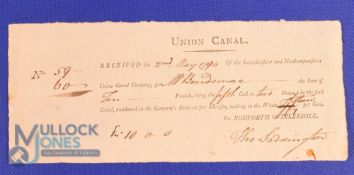 UNION CANAL.
RECEIVED the 2nd May 1794 Of the Leicestershire and Northamptonshire
No 59
60
Union Canal Company, per the Sum of
Ten Pounds, being the fifth Call on two Shares in the said
Canal, numbered in the Company's Books as per Margin, making in the Whole per Cent.
For BOSWORTH and INKERSOLE.
£ 10 0 0
MULLOCK
JONES